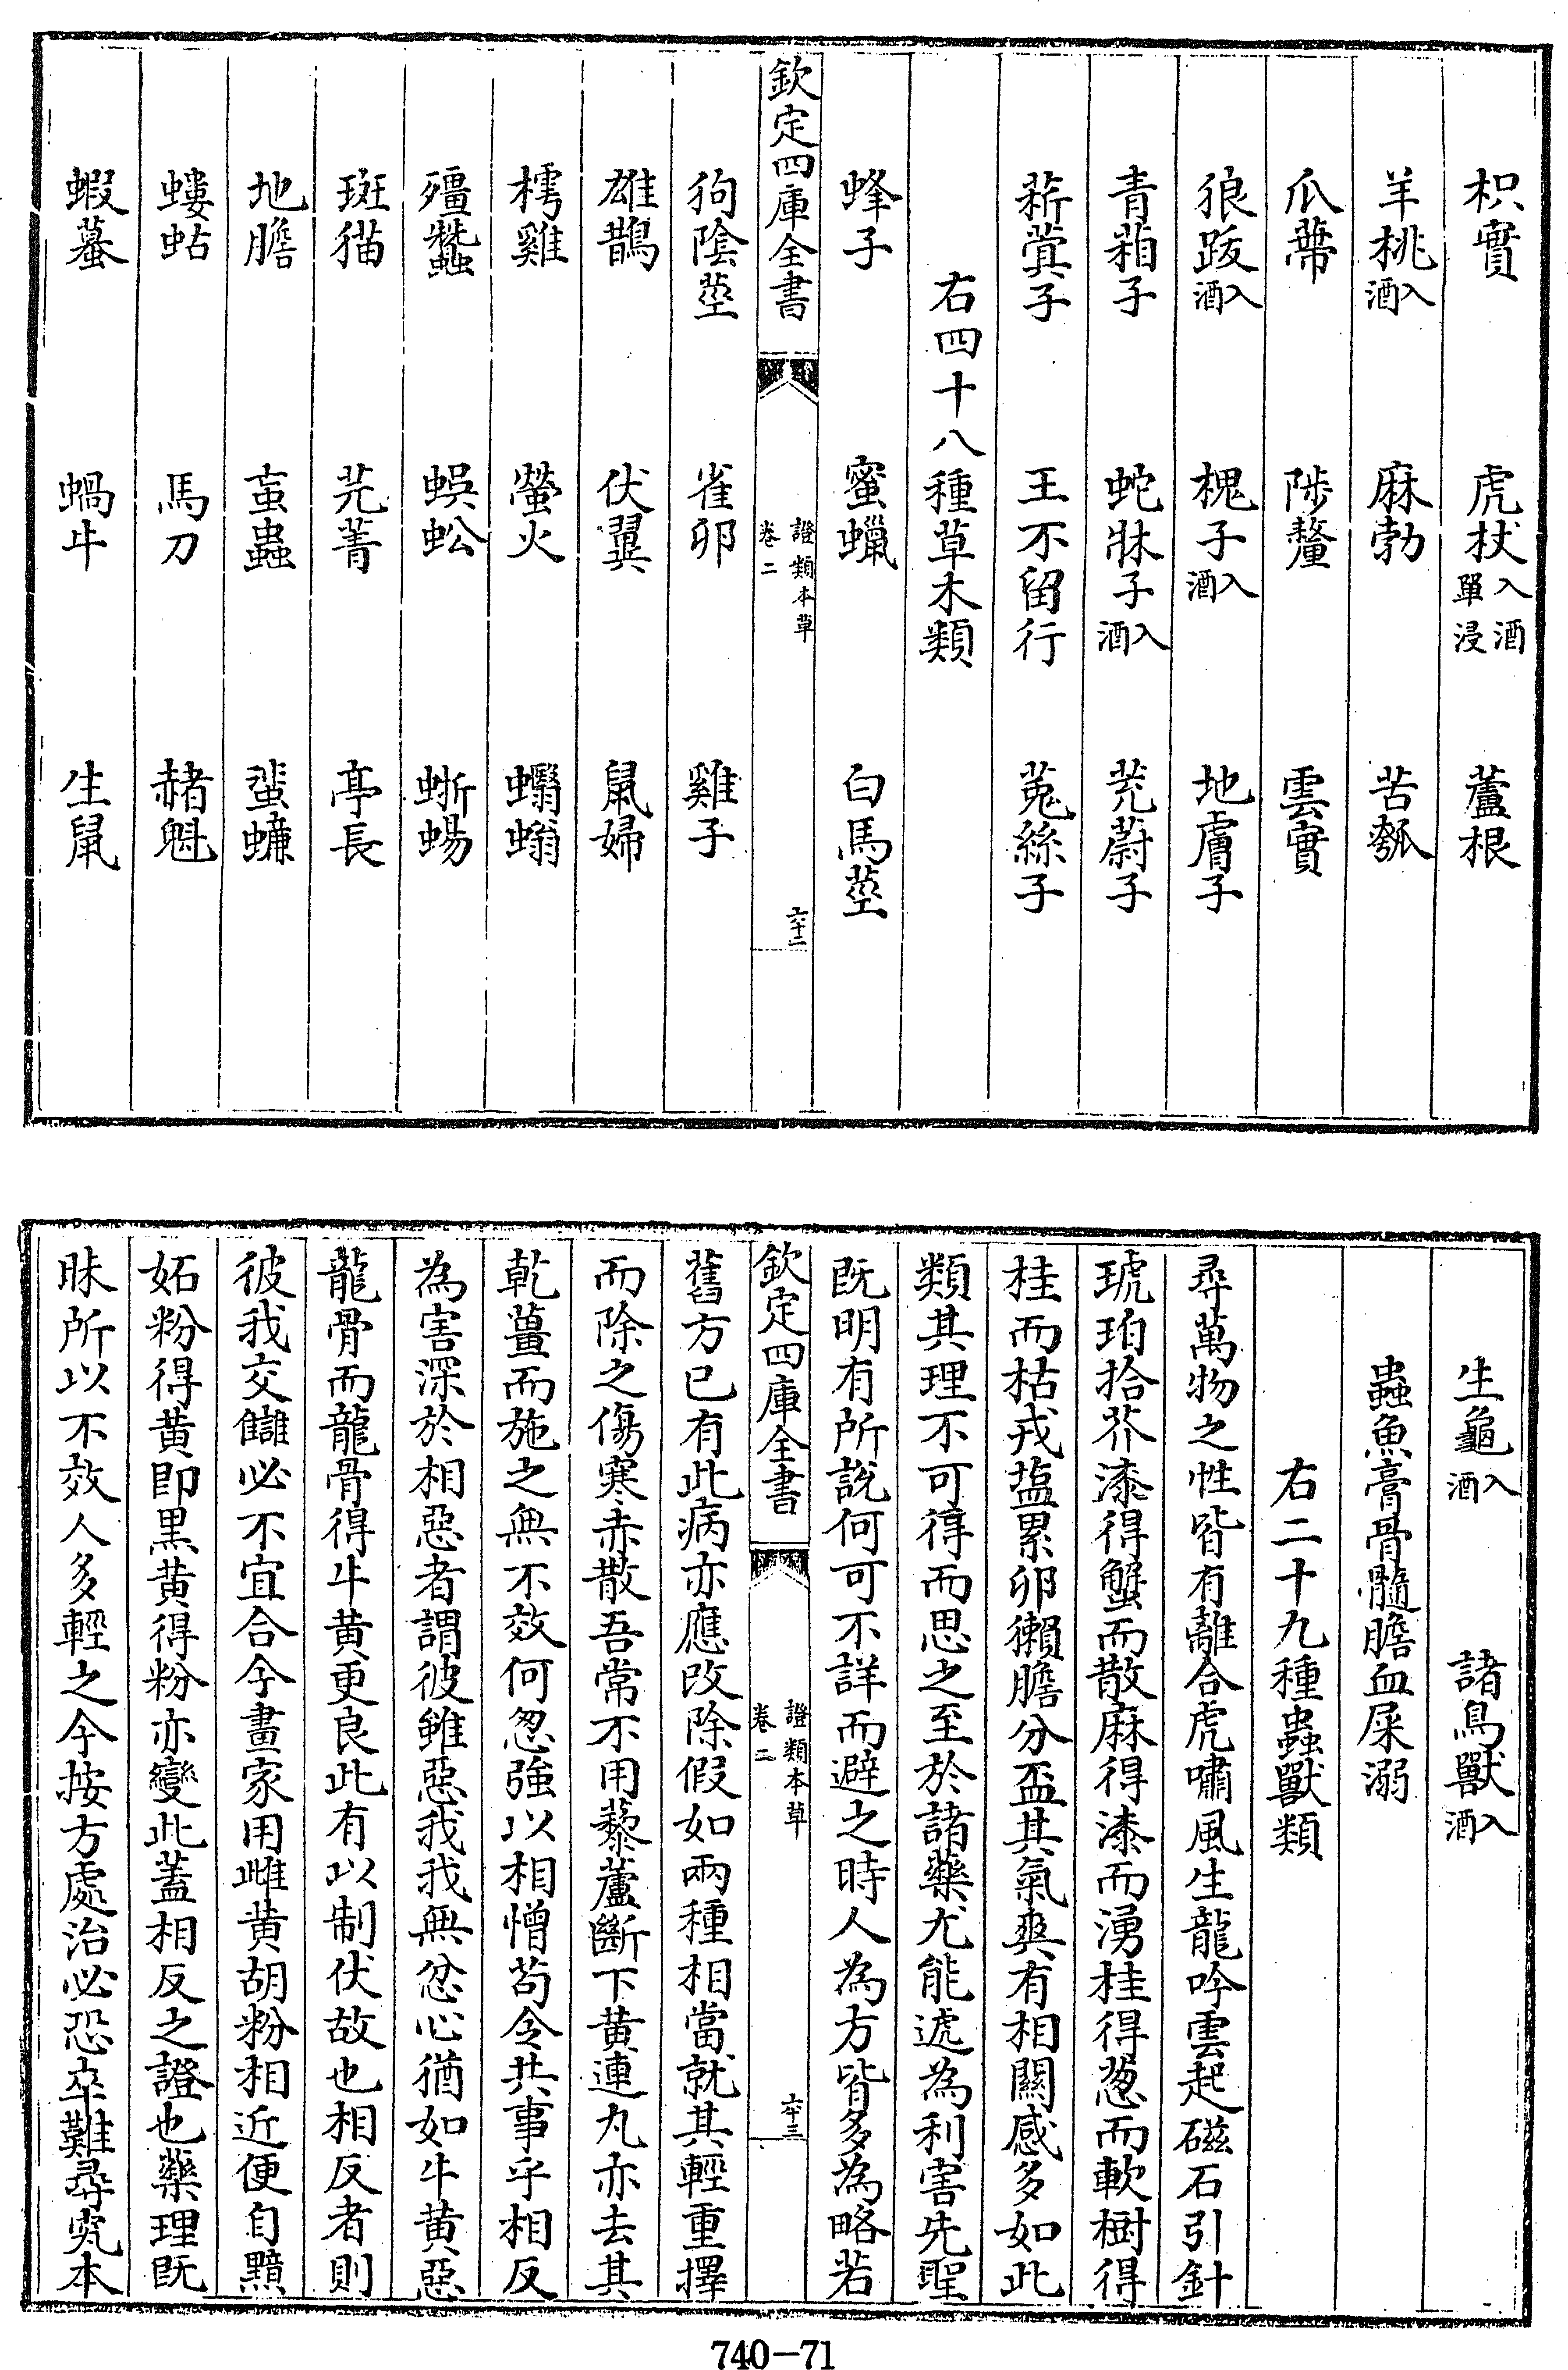 枳實　虎杖入酒單浸　蘆根
羊桃入酒　麻勃　苦瓠
瓜蔕　陟釐　雲實
狼跋入酒　槐子入酒　地膚子
青葙子　蛇牀子入酒　茺蔚子
菥蓂子　王不留行　菟絲子
右四十八種草木類
蜂子　蜜蠟　白馬莖
欽定四庫全書　證類本草卷二　六十二
狗陰莖　雀卵　雞子
雄鵲　伏翼　鼠婦
樗雞　螢火　蠮螉
殭蠶　蜈蚣　蜥蜴
斑猫　芫菁　亭長
地膽　䖟蟲　蜚蠊
螻蛄　馬刀　赭魁
蝦蟇　蝸牛　生鼠
生龜入酒　諸鳥獸入酒
蟲魚膏骨髓膽血屎溺
右二十九種蟲獸類
尋萬物之性皆有離合虎嘯風生龍吟雲起磁石引針
琥珀拾芥漆得蟹而散麻得漆而湧桂得葱而軟樹得
桂而枯戎塩累卵獺膽分盃其氣爽有相關感多如此
類其理不可得而思之至於諸藥尤能遞為利害先聖
既明有所說何可不詳而避之時人為方皆多為略若
欽定四庫全書　證類本草卷二　六十三
舊方已有此病亦應改除假如兩種相當就其輕重擇
而除之傷寒赤散吾常不用藜蘆斷下黄連丸亦去其
乾薑而施之無不效何忽強以相憎苟令共事乎相反
為害深於相惡者謂彼雖惡我我無忿心猶如牛黄惡
龍骨而龍骨得牛黄更良此有以制伏故也相反者則
彼我交讎必不宜合今畫家用雌黄胡粉相近便自黯
妬粉得黄即黒黄得粉亦變此蓋相反之證也藥理既
昧所以不效人多輕之今按方處治必恐卒難尋究本
740-71